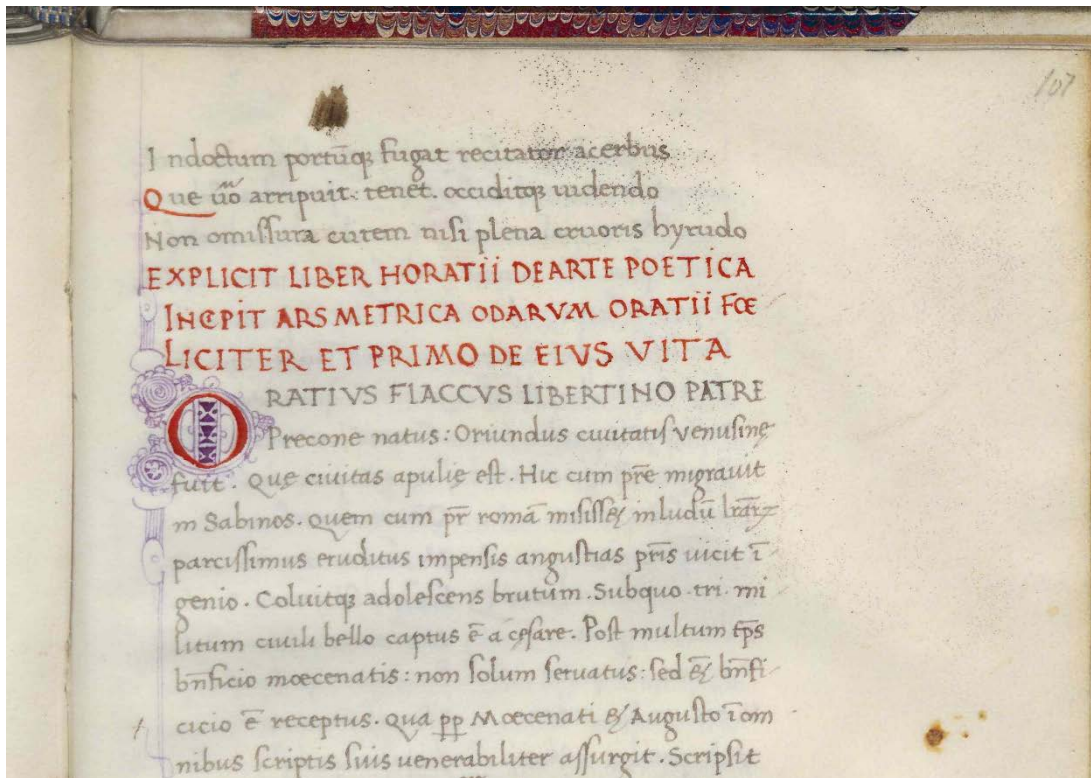 107
Indoctum portūq; fugat recitator acerbus
Que ūo arripuit. tenet. occiditq; uidendo
Non omissura cutem nisi plena cruoris hyrudo
EXPLICIT LIBER HORATII DE ARTE POETICA
INCEPIT ARS METRICA ODARVM ORATII FOE
LICITER ET PRIMO DE EIUS VITA
ORATIVS FLACCVS LIBERTINO PATRE
Precone natus: Oriundus ciuitatis venusinę
fuit. Quę ciuitas apulię est. Hic cum pr̄e migrauit
in Sabinos. quem cum pr̄ romā misiss& in ludū
parcissimus eruditus impensis angustias pr̄is uicit ī
genio. Coluitq; adolescens brutum. Sub quo. tri. mi
litum ciuili bello captus ē a cęsare. Post multum tp̄s
bn̄ficio moecenatis: non solum seruatus: sed &
cicio ē receptus. qua pp Moecenati & Augusto ī om
nibus scriptis suis uenerabiliter assurgit. Scripsit